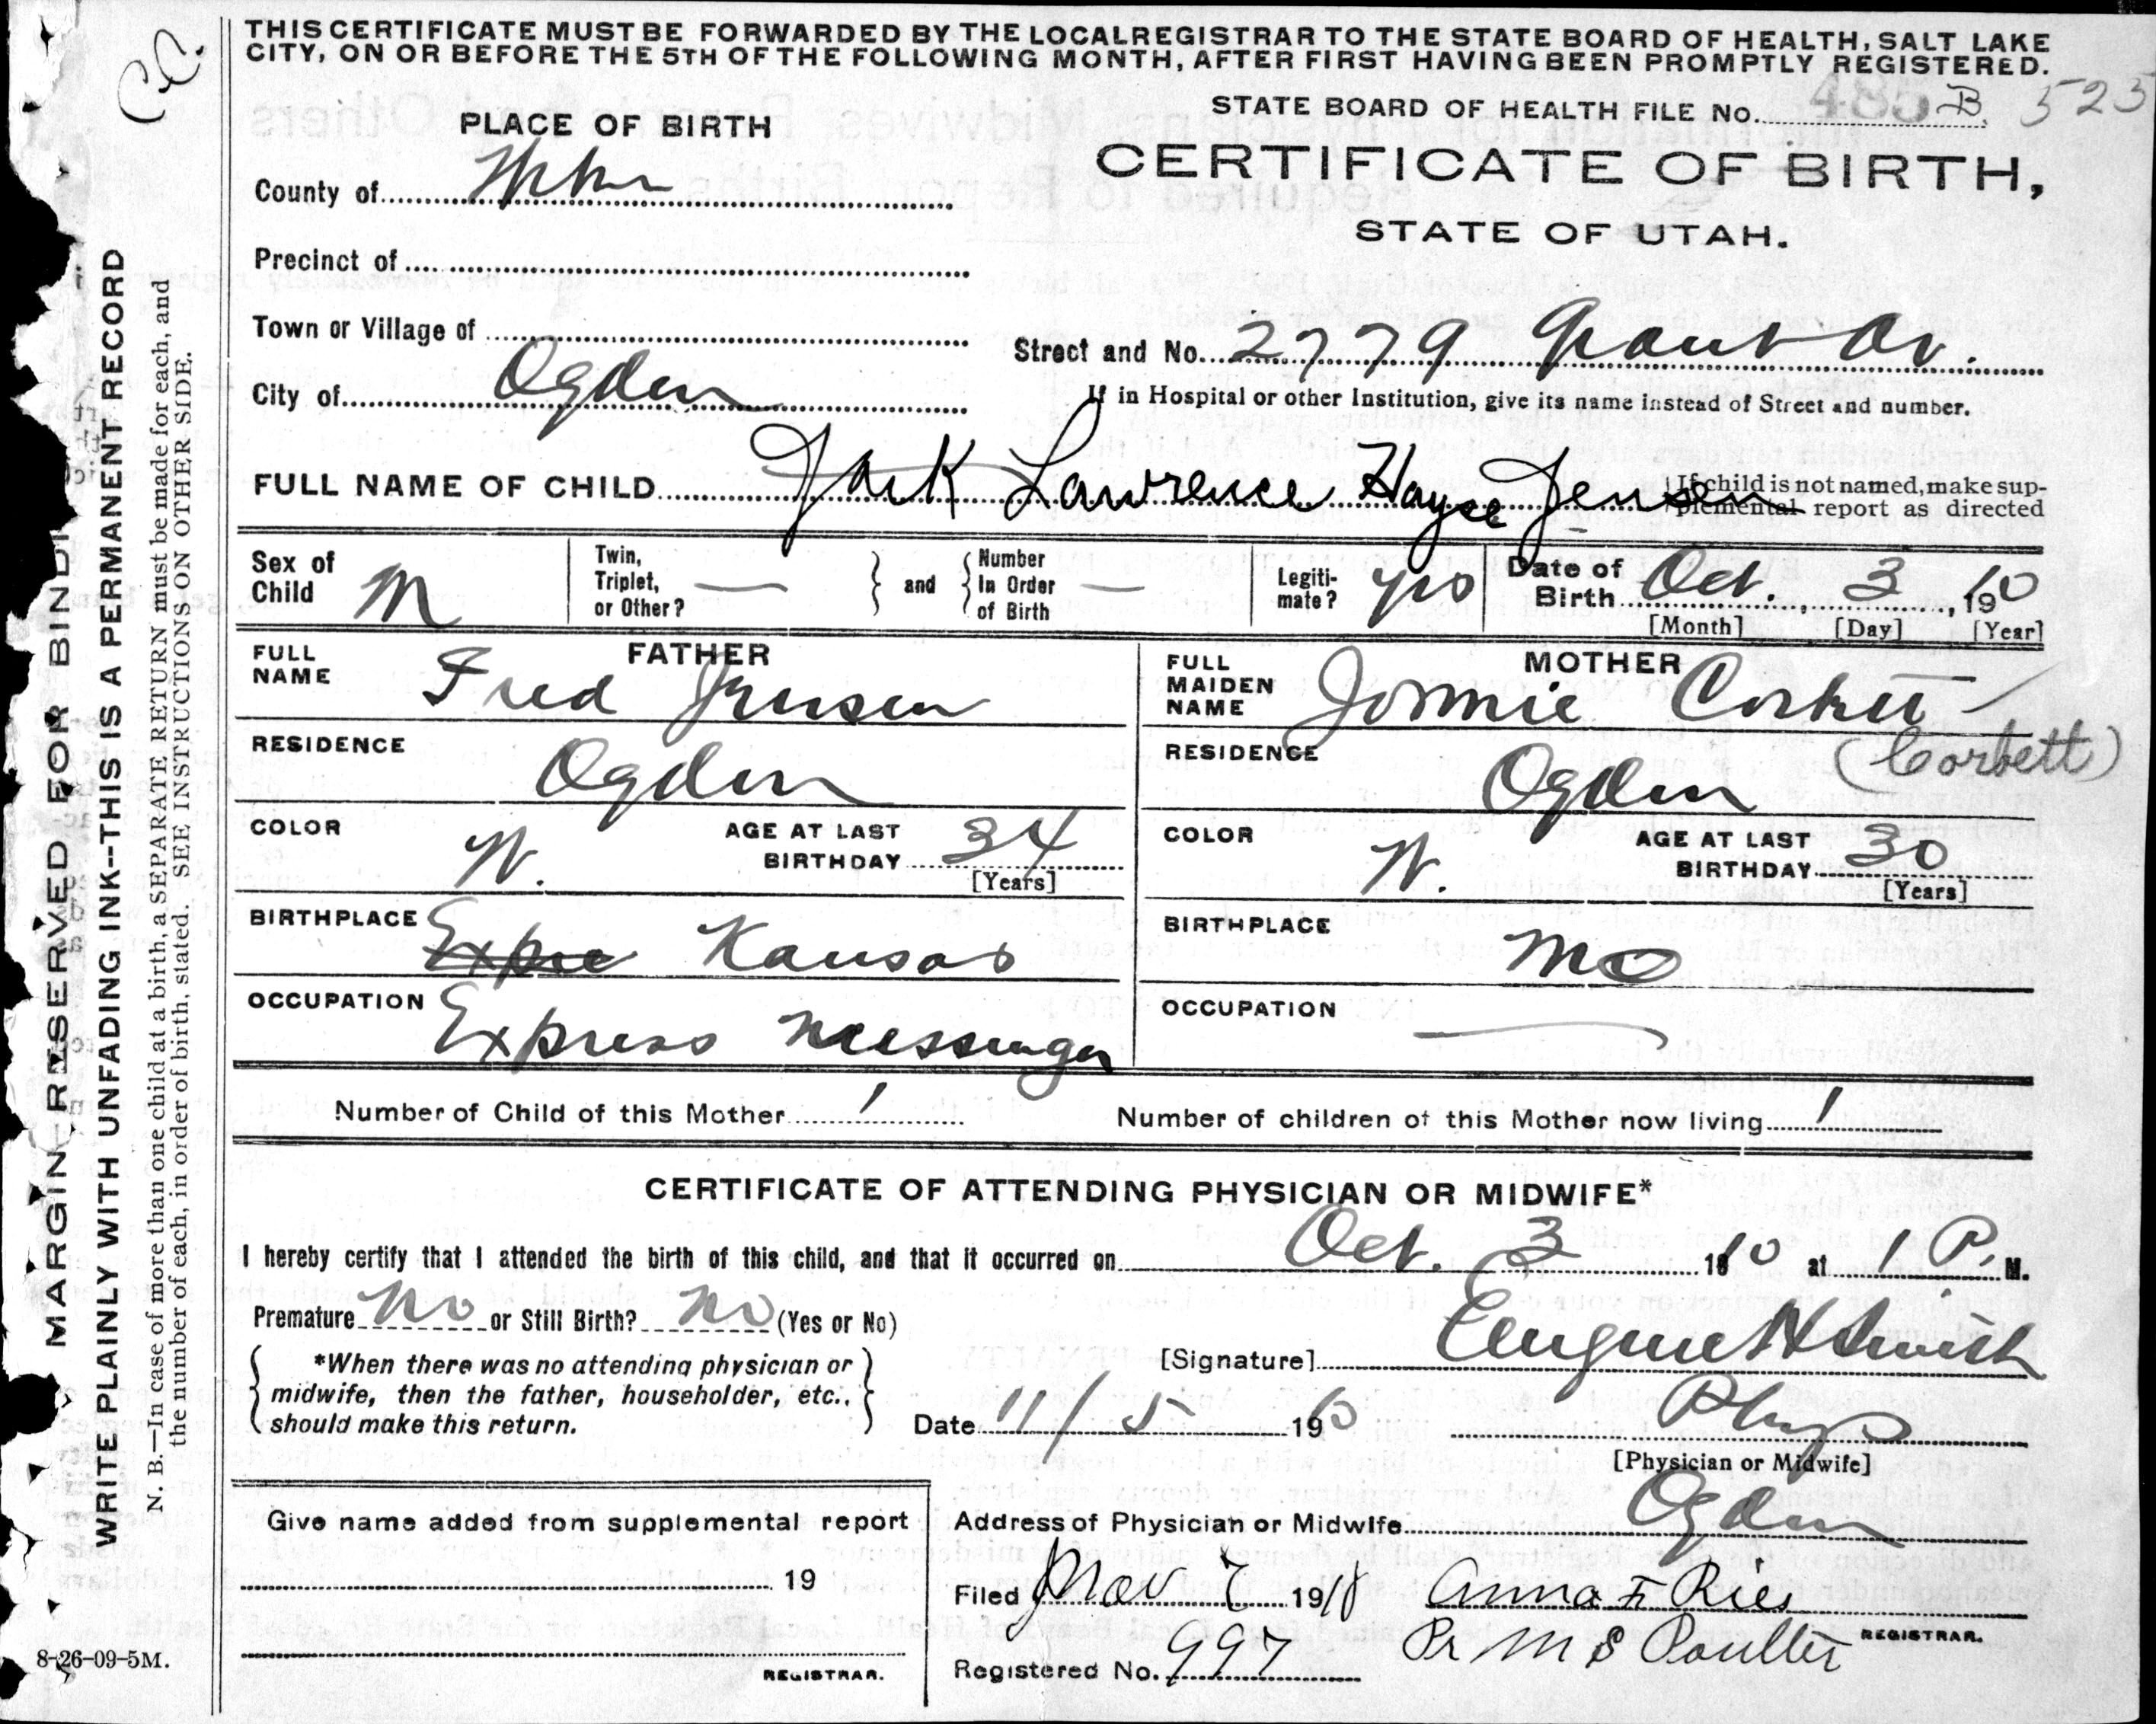 THIS CERTIFICATE MUST BE FORWARDED BY THE LOCAL REGISTRAR TO THE STATE BOARD OF HEALTH, SALT LAKE
CITY, ON OR BEFORE THE 5TH OF THE FOLLOWING MONTH, AFTER FIRST HAVING BEEN PROMPTLY REGISTERED.
STATE BOARD OF HEALTH FILE No. 485 B. 523
PLACE OF BIRTH
CERTIFICATE OF BIRTH,
STATE OF UTAH.
County of Weber
Precinct of
Town or Village of
Street and No. 2779 Grant Av.
City of Ogden
If in Hospital or other Institution, give its name instead of Street and number.
FULL NAME OF CHILD Jack Lawrence Hayse Jensen
If child is not named, make sup-
plemental report as directed
Sex of Child M
Twin, Triplet, or Other? — and Number In Order of Birth —
Legiti-mate? yes
Date of Birth Oct. 3, 1910
[Month] [Day] [Year]
FATHER
FULL NAME Fred Jensen
RESIDENCE Ogden
COLOR W. AGE AT LAST BIRTHDAY 34
[Years]
BIRTHPLACE Expre Kansas
OCCUPATION Express Messenger
MOTHER
FULL MAIDEN NAME Jommie Corbett
(Corbett)
RESIDENCE Ogden
COLOR W. AGE AT LAST BIRTHDAY 30
[Years]
BIRTHPLACE Mo
OCCUPATION —
Number of Child of this Mother 1
Number of children of this Mother now living 1
CERTIFICATE OF ATTENDING PHYSICIAN OR MIDWIFE*
I hereby certify that I attended the birth of this child, and that it occurred on Oct. 3 1910 at 1 P. M.
Premature No or Still Birth? No (Yes or No)
*When there was no attending physician or
midwife, then the father, householder, etc.,
should make this return.
[Signature] Eugene H Smith
Date 11/5 1910
Phys
[Physician or Midwife]
Give name added from supplemental report
19
REGISTRAR.
Address of Physician or Midwife Ogden
Filed Nov 7 1910 Anna F Ries
Pr M S Poulter REGISTRAR.
Registered No. 997
8-26-09-5M.
MARGIN RESERVED FOR BINDI
WRITE PLAINLY WITH UNFADING INK--THIS IS A PERMANENT RECORD
N. B.—In case of more than one child at a birth, a SEPARATE RETURN must be made for each, and
the number of each, in order of birth, stated. SEE INSTRUCTIONS ON OTHER SIDE.